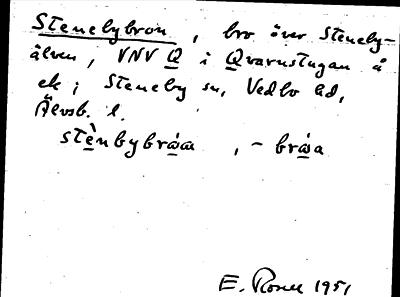 Stenebybron, bro över Steneby-
älven, VNV Q i Qvarnstugan å
ek; Steneby sn, Vedbo hd,
Älvsb. l.
stènbybrωa, - brωa
E. Rosell 1951